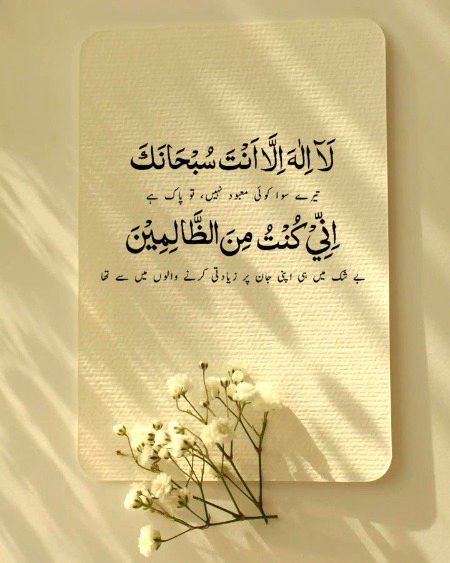 لَآ اِلٰهَ اِلَّا اَنْتَ سُبْحَانَكَ
تیرے سوا کوئی معبود نہیں، تو پاک ہے
اِنِّيْ كُنْتُ مِنَ الظَّالِمِيْنَ
بے شک میں ہی اپنی جان پر زیادتی کرنے والوں میں سے تھا